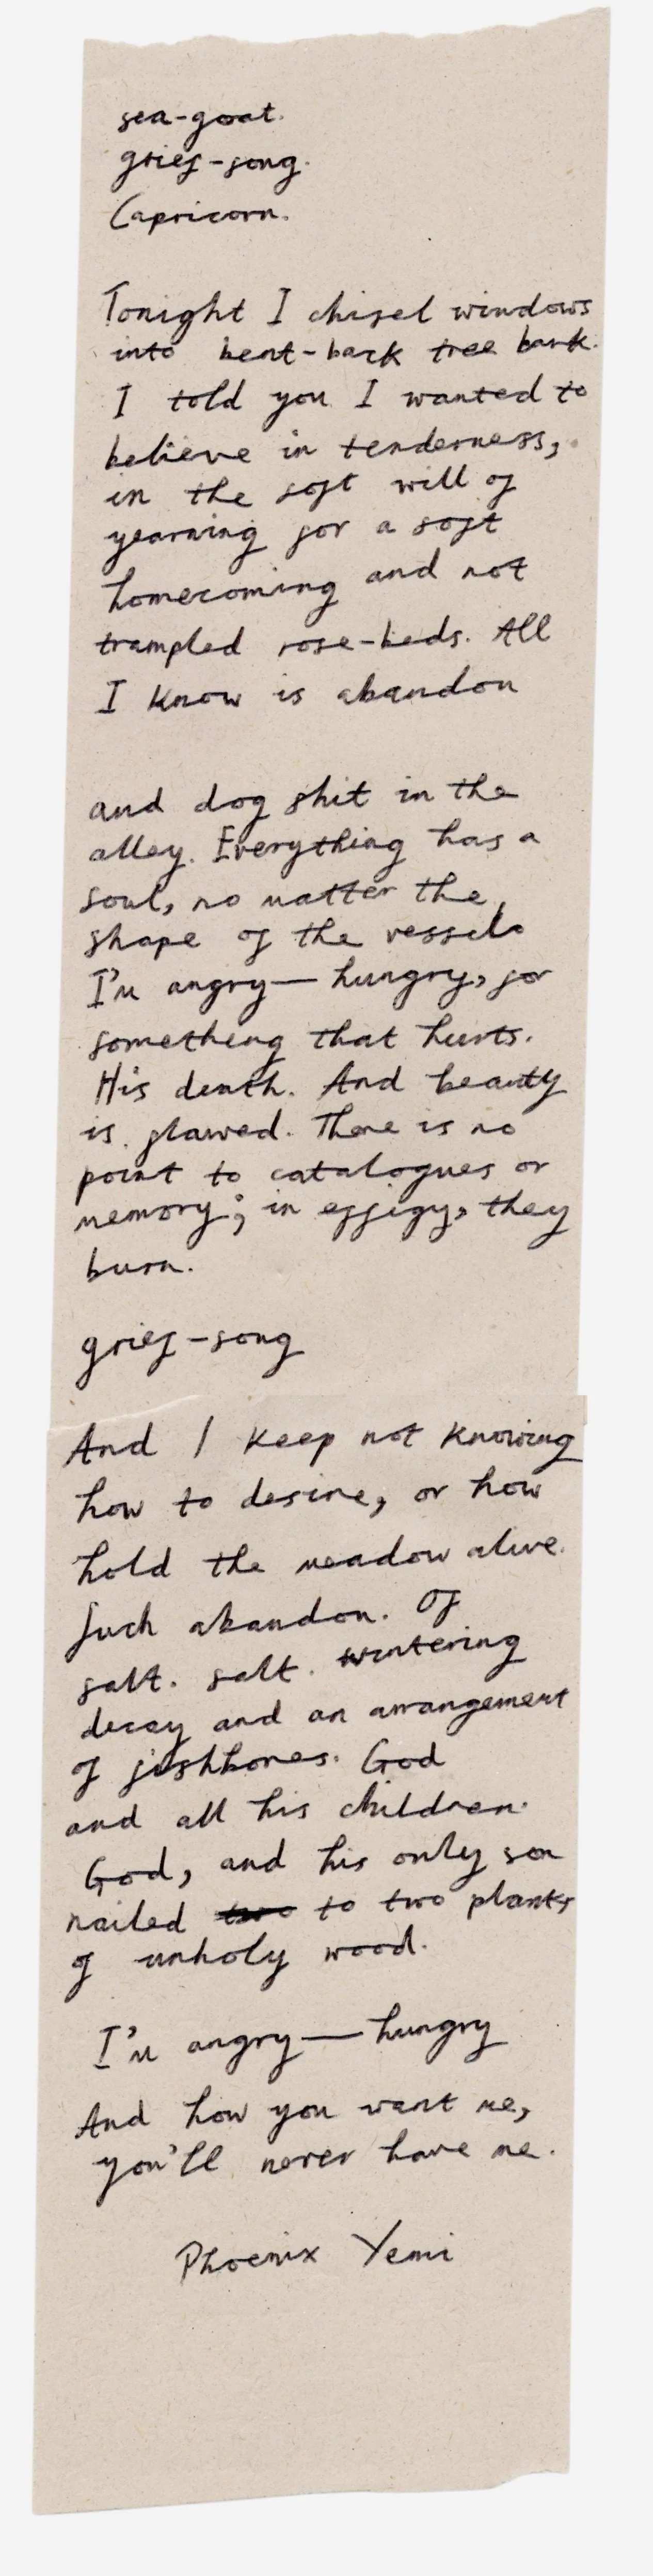 sea-goat.
grief-song.
Capricorn.
Tonight I chisel windows
into bent-back tree bark.
I told you I wanted to
believe in tenderness,
in the soft will of
yearning for a soft
homecoming and not
trampled rose-beds. All
I know is abandon
and dog shit in the
alley. Everything has a
soul, no matter the
shape of the vessel.
I'm angry—hungry, for
something that hurts.
His death. And beauty
is flawed. There is no
point to catalogues or
memory; in effigy, they
burn.
grief-song
And I keep not knowing
how to desire, or how
hold the meadow alive.
Such abandon. Of
salt. salt. wintering
decay and an arrangement
of fishbones. God
and all his children.
God, and his only son
nailed two to two planks
of unholy wood.
I'm angry—hungry
And how you want me,
you'll never have me.
Phoenix Yemi